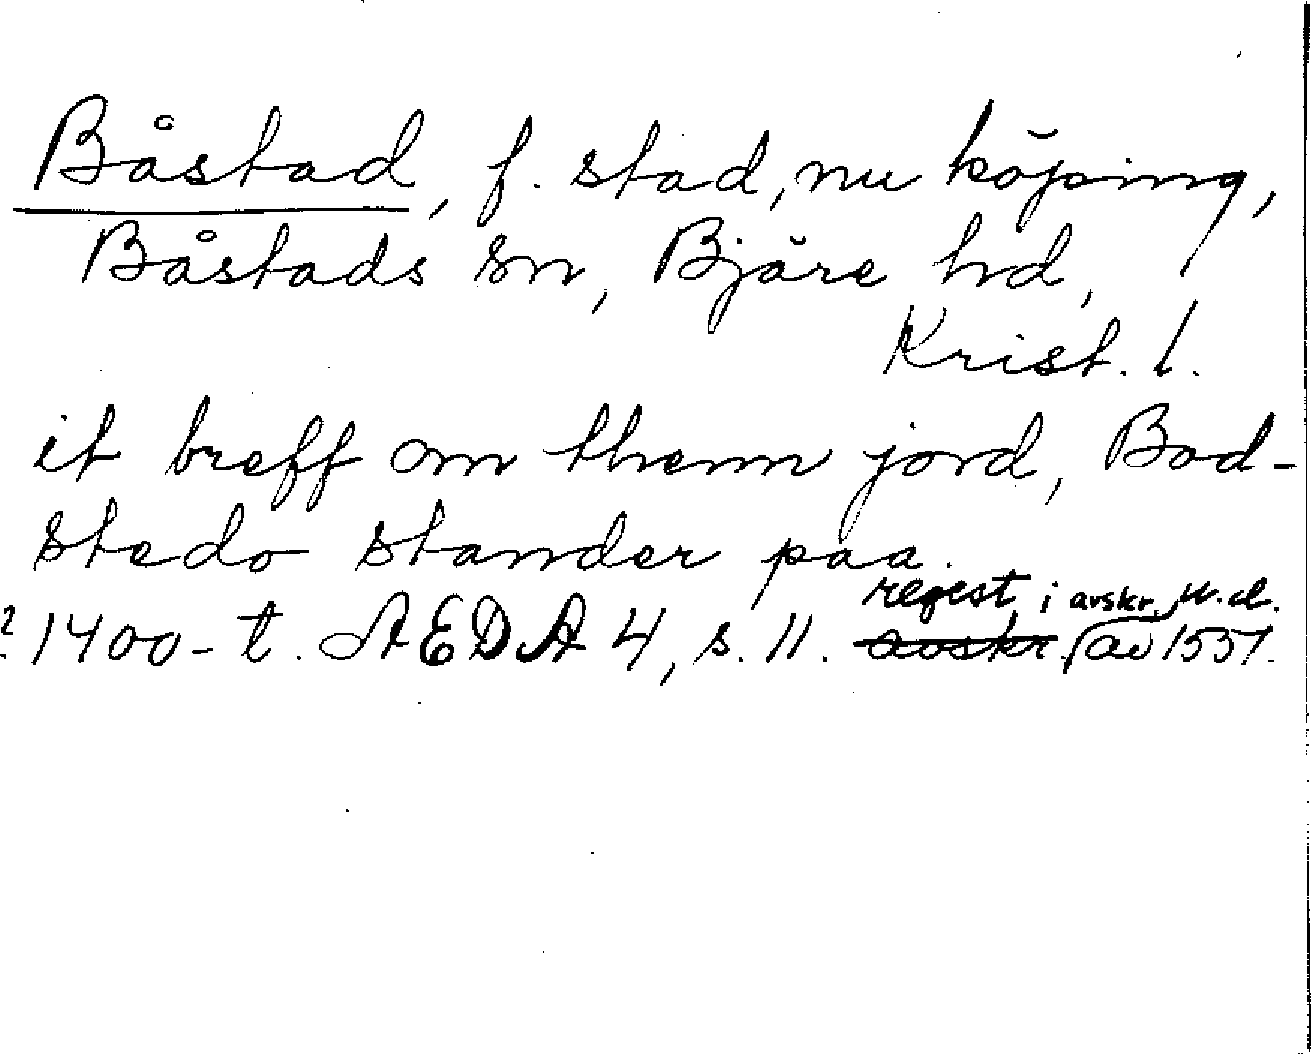 Båstad, f. stad, nu köping,
Båstads sn, Bjäre hd,
Krist. l.
it breff om thenn jord, Bod-
stedo stander paa.
regest i avskr.
? 1400-t. AEDA 4, s. 11. avskr. av 1551.